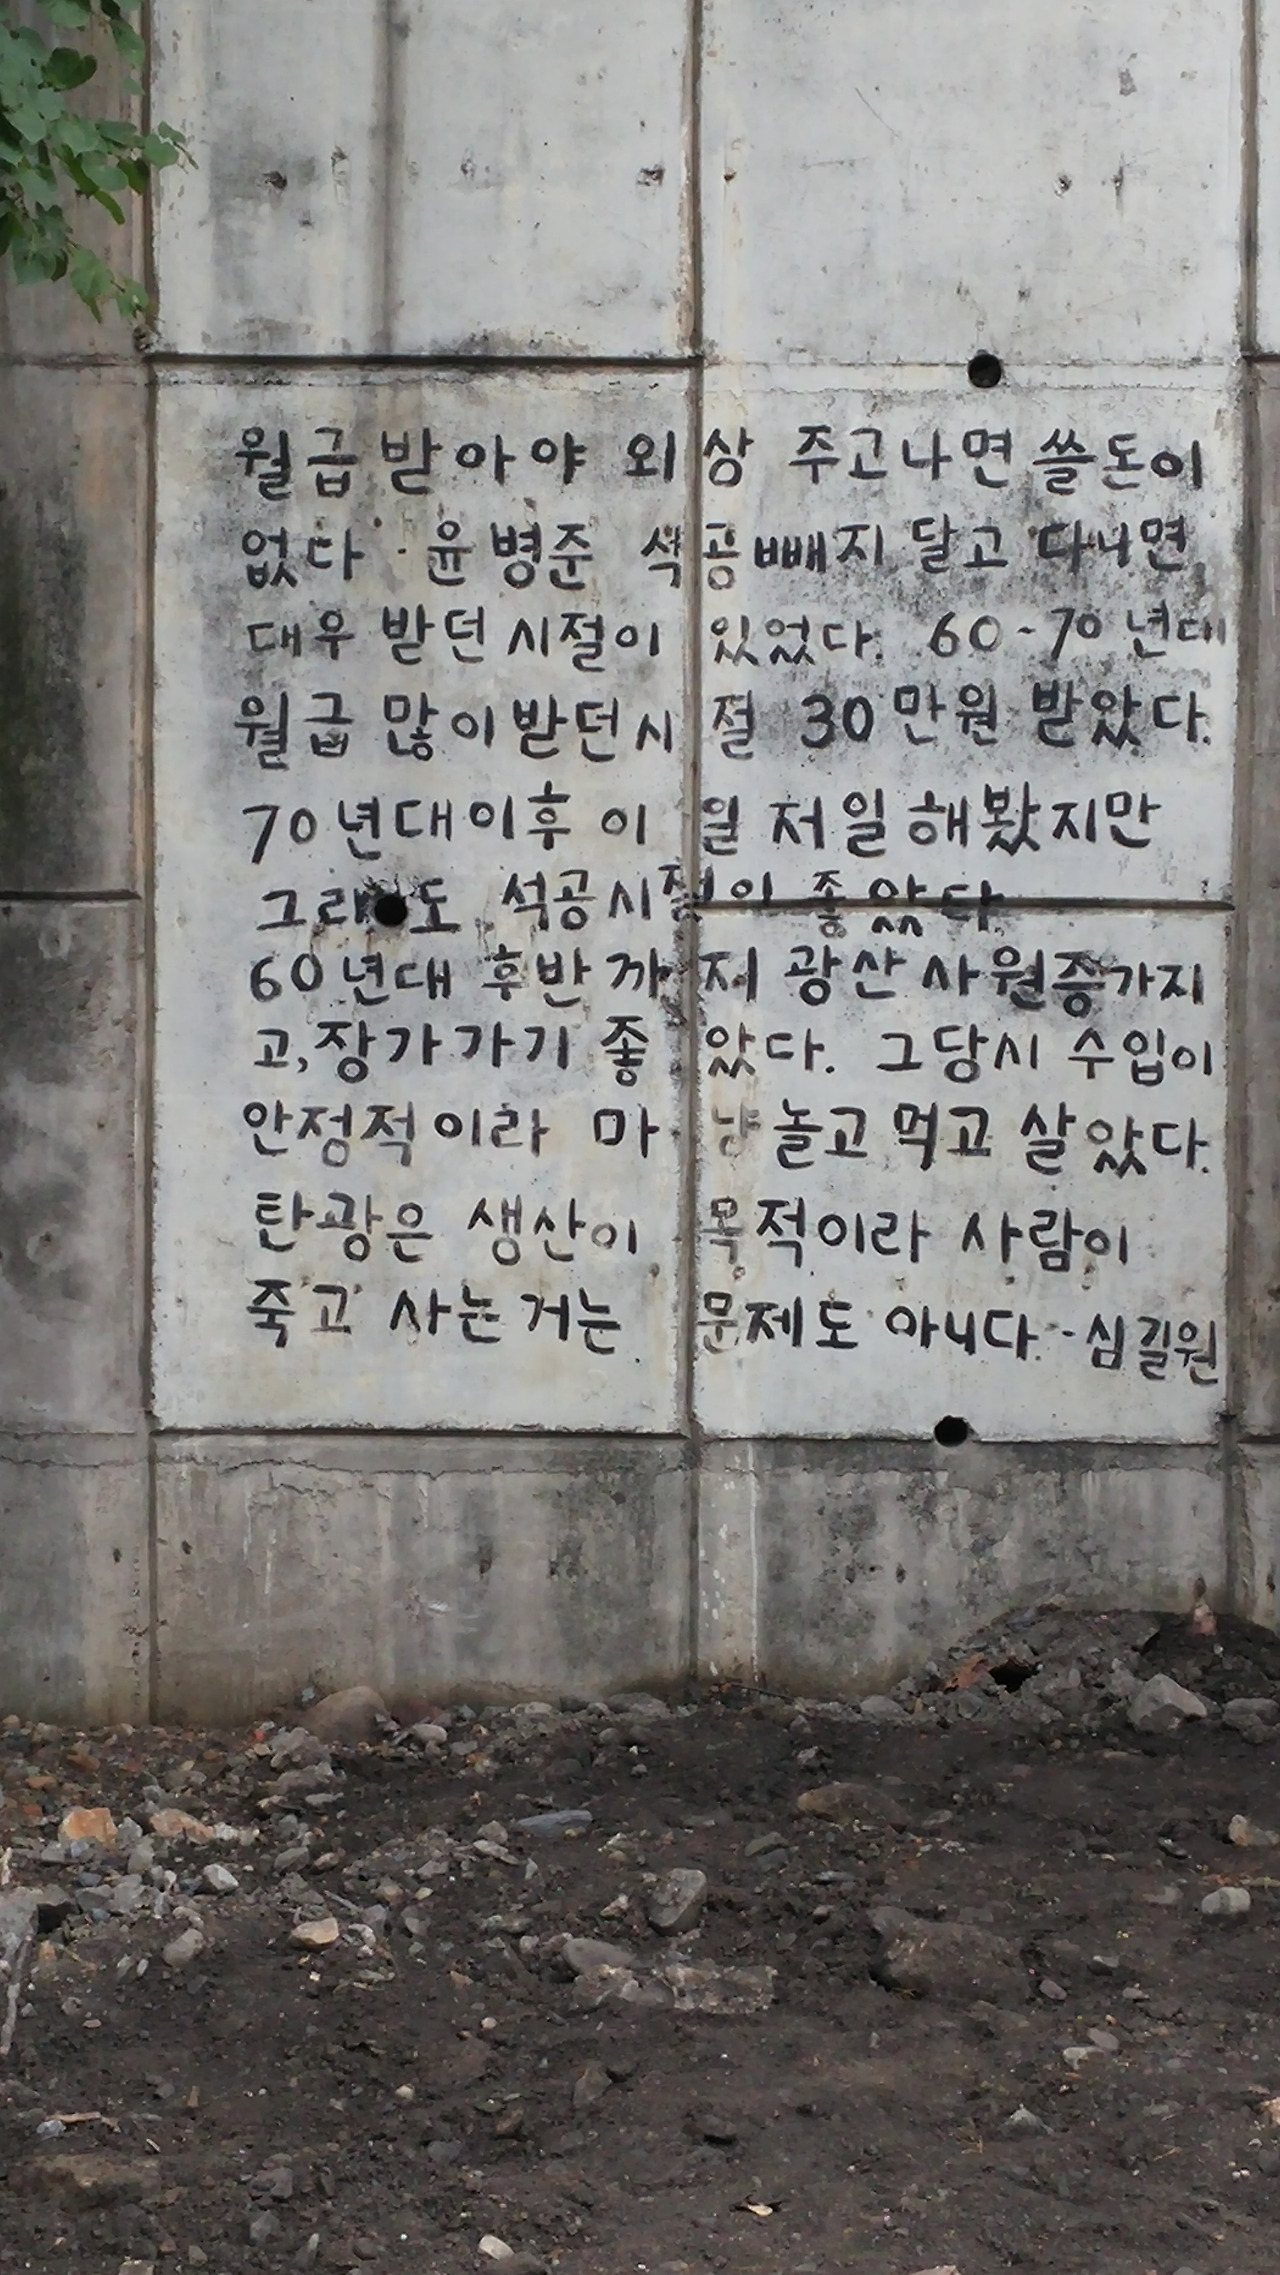 월급 받아야 외상 주고나면 쓸돈이
없다 · 윤병준 석공빼지 달고 다니면
대우 받던 시절이 있었다. 60-70년대
월급 많이 받던시절 30만원 받았다.
70년대이후 이일 저일 해봤지만
그래도 석공시절이 좋았다
60년대 후반까지 광산 사원증가지
고, 장가가기 좋았다. 그당시 수입이
안정적이라 마냥 놀고 먹고 살았다.
탄광은 생산이 목적이라 사람이
죽고 사는거는 문제도 아니다. -심길원